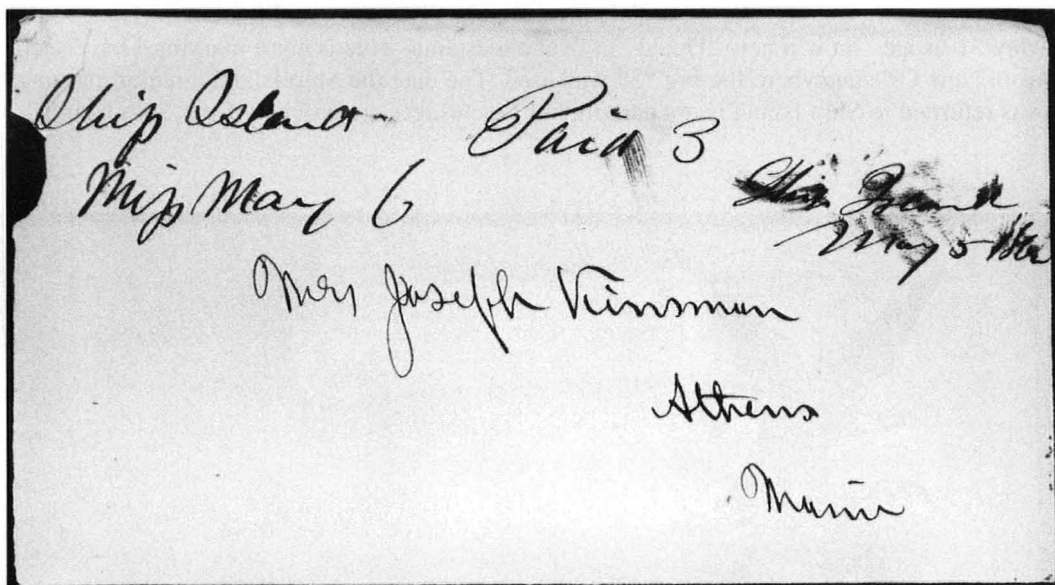 Ship Island
Paid 3
Miss May 6
Ship Island
May 5
Mrs Joseph Kinsman
Athens
Maine